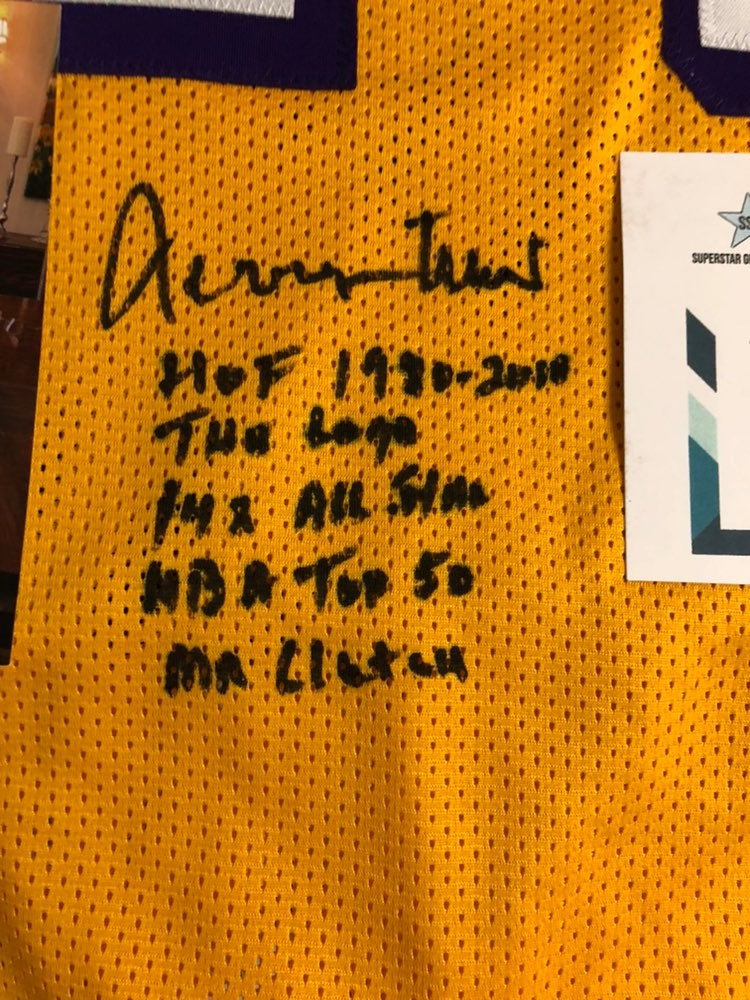 Jerry West
HOF 1980-2010
The Logo
14x All Star
NBA Top 50
Mr Clutch
SS
SUPERSTAR G